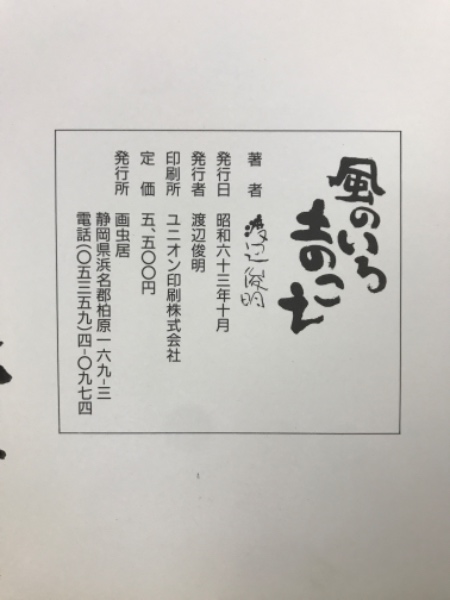 風のいろ
土のこえ
著者 渡辺俊明
発行日 昭和六十三年十月
発行者 渡辺俊明
印刷所 ユニオン印刷株式会社
定価 五、五〇〇円
発行所 画虫居
静岡県浜名郡柏原一六九-三
電話(〇五三五九)四-〇九七四